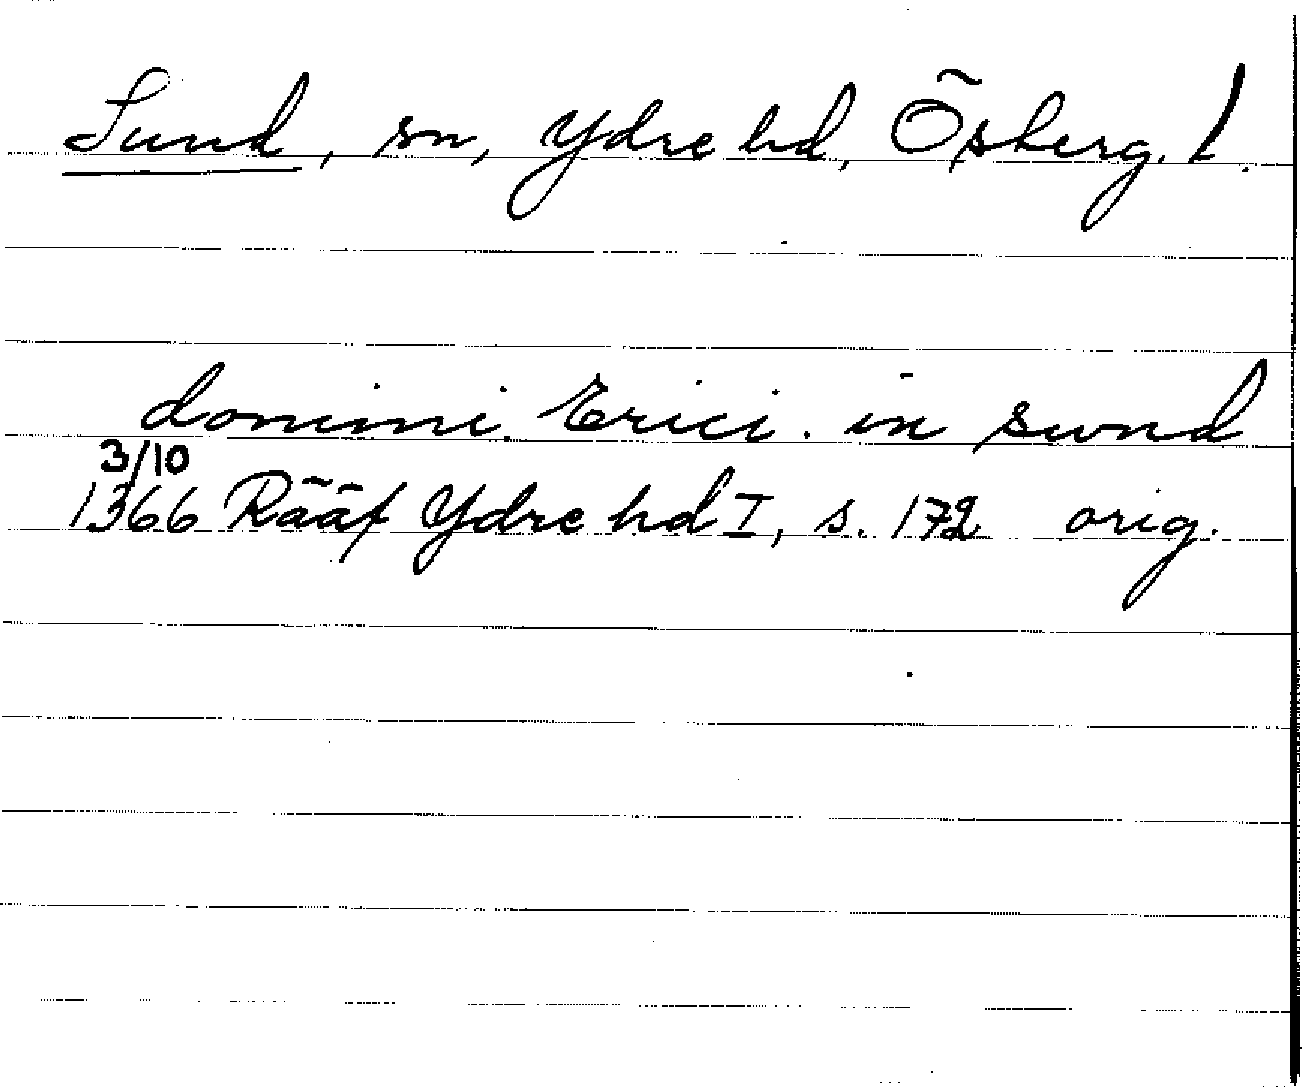 Sund, sn, Ydre hd, Ösberg. l.
domini Erici. in swnd
3/10
1366 Rääf Ydre hd I, s. 172 orig.